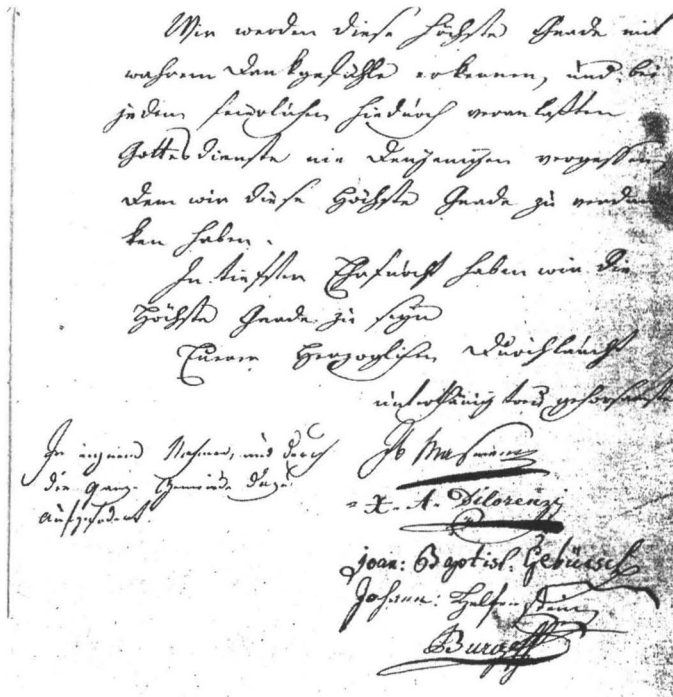 Wir werden diese höchste Gnade mit
wahrem Dankgefühle erkennen, und bei
jedem feierlichen hiedurch veranlaßten
Gottesdienste nie denjenigen vergessen,
dem wir diese höchste Gnade zu verdan
ken haben.
In tiefster Ehrfurcht haben wir die
höchste Gnade zu seyn
Euerer Herzoglichen Durchlaucht
unterthänig treu gehorsamste
In eignem Nahmen, und durch
die ganze Gemeinde dazu
aufgefodert.
X. A. Dilorenzi
Joan: Baptist: Gebürsch
Johann: Helfenstein
Burgeff